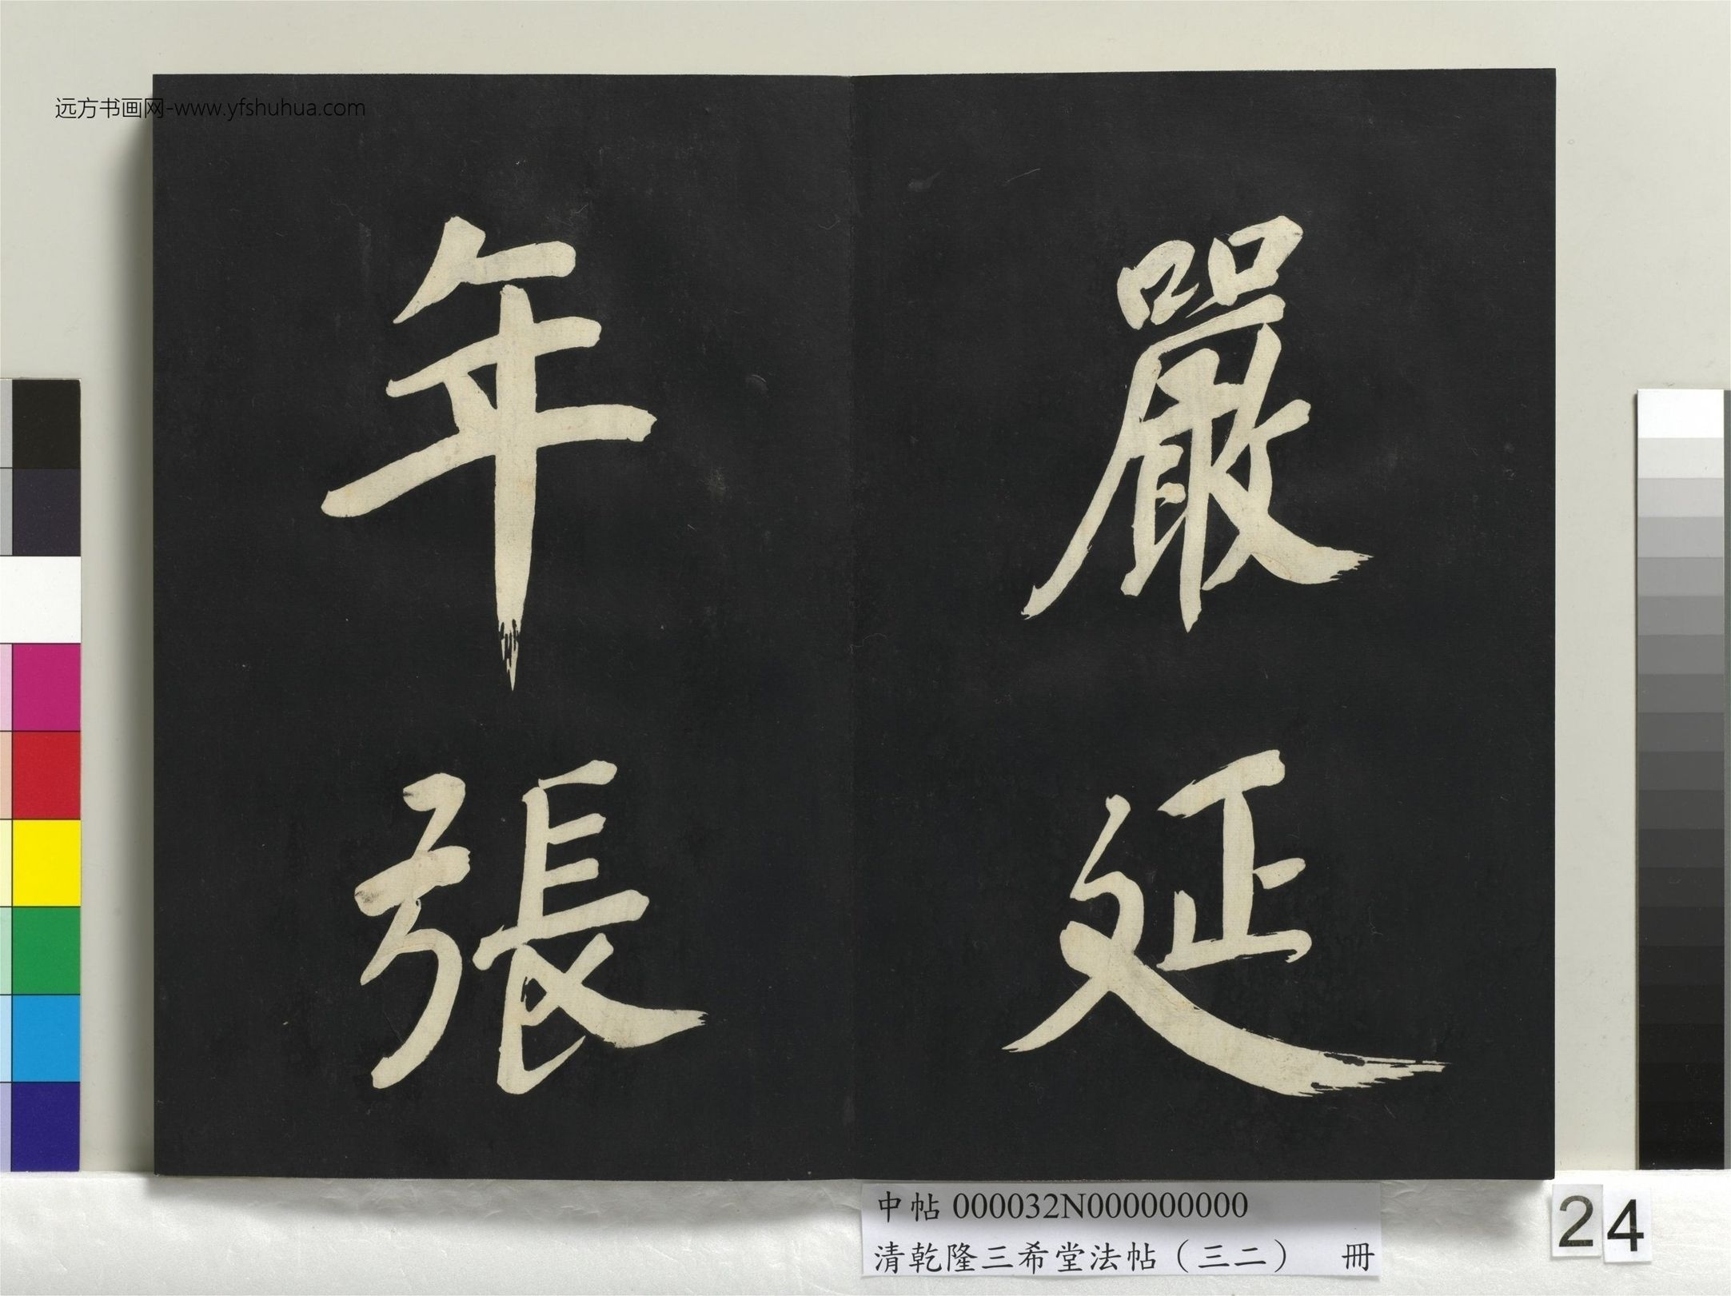 嚴延
年張
远方书画网-www.yfshuhua.com
中帖 000032N000000000
清乾隆三希堂法帖（三二） 冊
24